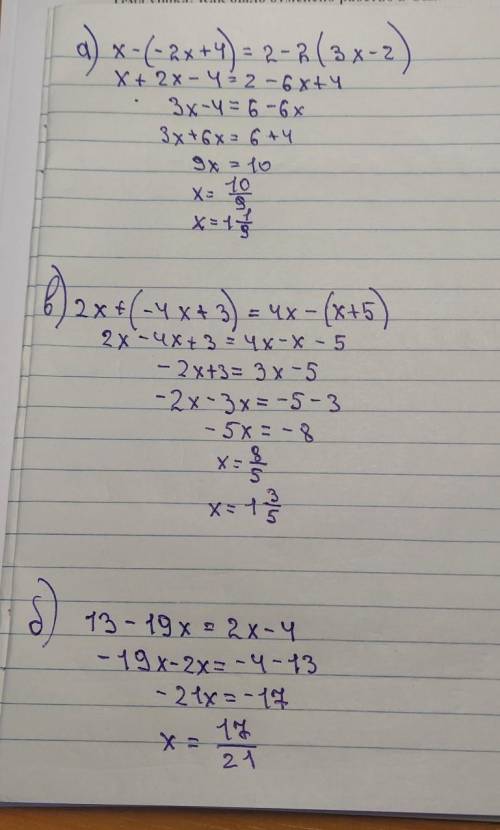 а) x-(-2x+4)=2-2(3x-2)
x+2x-4=2-6x+4
3x-4=6-6x
3x+6x=6+4
9x=10
x=10/9
x=1 1/9
в) 2x+(-4x+3)=4x-(x+5)
2x-4x+3=4x-x-5
-2x+3=3x-5
-2x-3x=-5-3
-5x=-8
x=8/5
x=1 3/5
б) 13-19x=2x-4
-19x-2x=-4-13
-21x=-17
x=17/21